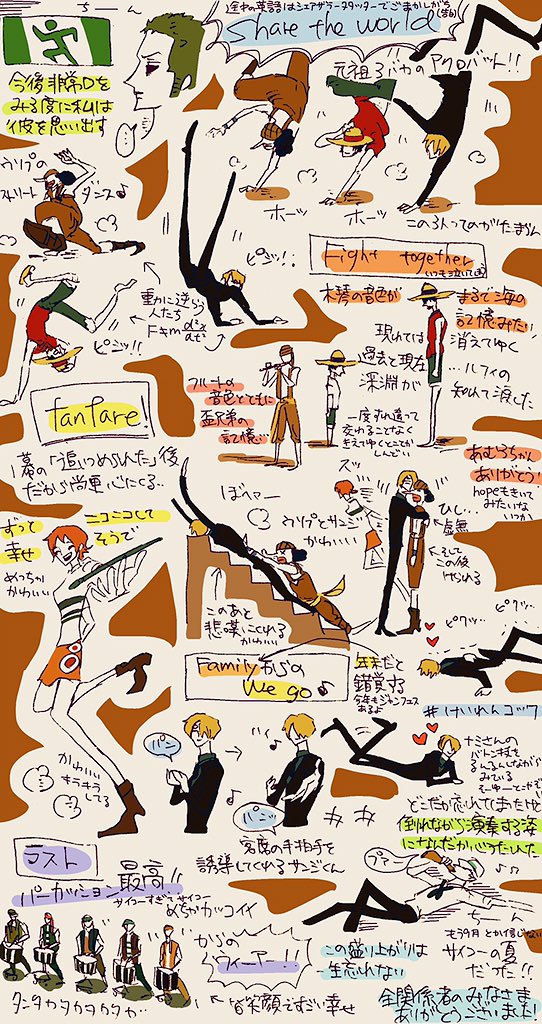 ちーん
Share the world
元祖3バカの
アクロバット!!
今後非常口を
みる度に私は
彼を思い出す
ウソップの
ストリート
ダンス♪
ホーッ
ホーッ
この3人ってのがたまらん
ピンッ!!
Fight together
重力に逆らう
人たち
ピンッ!!
木琴の音色が
まるで海の
記憶みたい
現れては
消えてゆく
過去と現在
深淵が
…ルフィの
fanfare!
フルートの
音色とともに
盃兄弟の
記憶…
一度すれ違って
交わることなく
きえてゆくとこが
しんどい
あむろちゃん
ありがとう
hopeもきいて
みたいな
いつか
1幕の「追いつめられた」後
だから尚更心にくる..
ずっと
ニコニコして
幸せ
そうで
めっちゃ
かわいい
ウソップとサンジ
かわいい
ズッ
虚無
←そして
この後
けられる
このあと
悲壮にくれる
かわいい
ピクッ…
ピクッ…
Familyからの
We go♪
年末だと
錯覚する
今年もジャンフェス
あるよ
#けいれんコック
パン
パン
ナミさんの
みている
かわいい
キラキラ
してる
客席の手拍子を
誘導してくれるサンジくん
倒れながら演奏する姿
になんだか心うたれた
ラスト
パーカッション最高!!
サイコーすぎてサイコー
めちゃカッコイイ
ちーん
からの
ウィーアー!!
この盛り上がりは
一生忘れない
サイコーの夏
だった!!
タンタカタカタカタカ..
←皆笑顔ですごい幸せ
全関係者のみなさま
ありがとうございました!